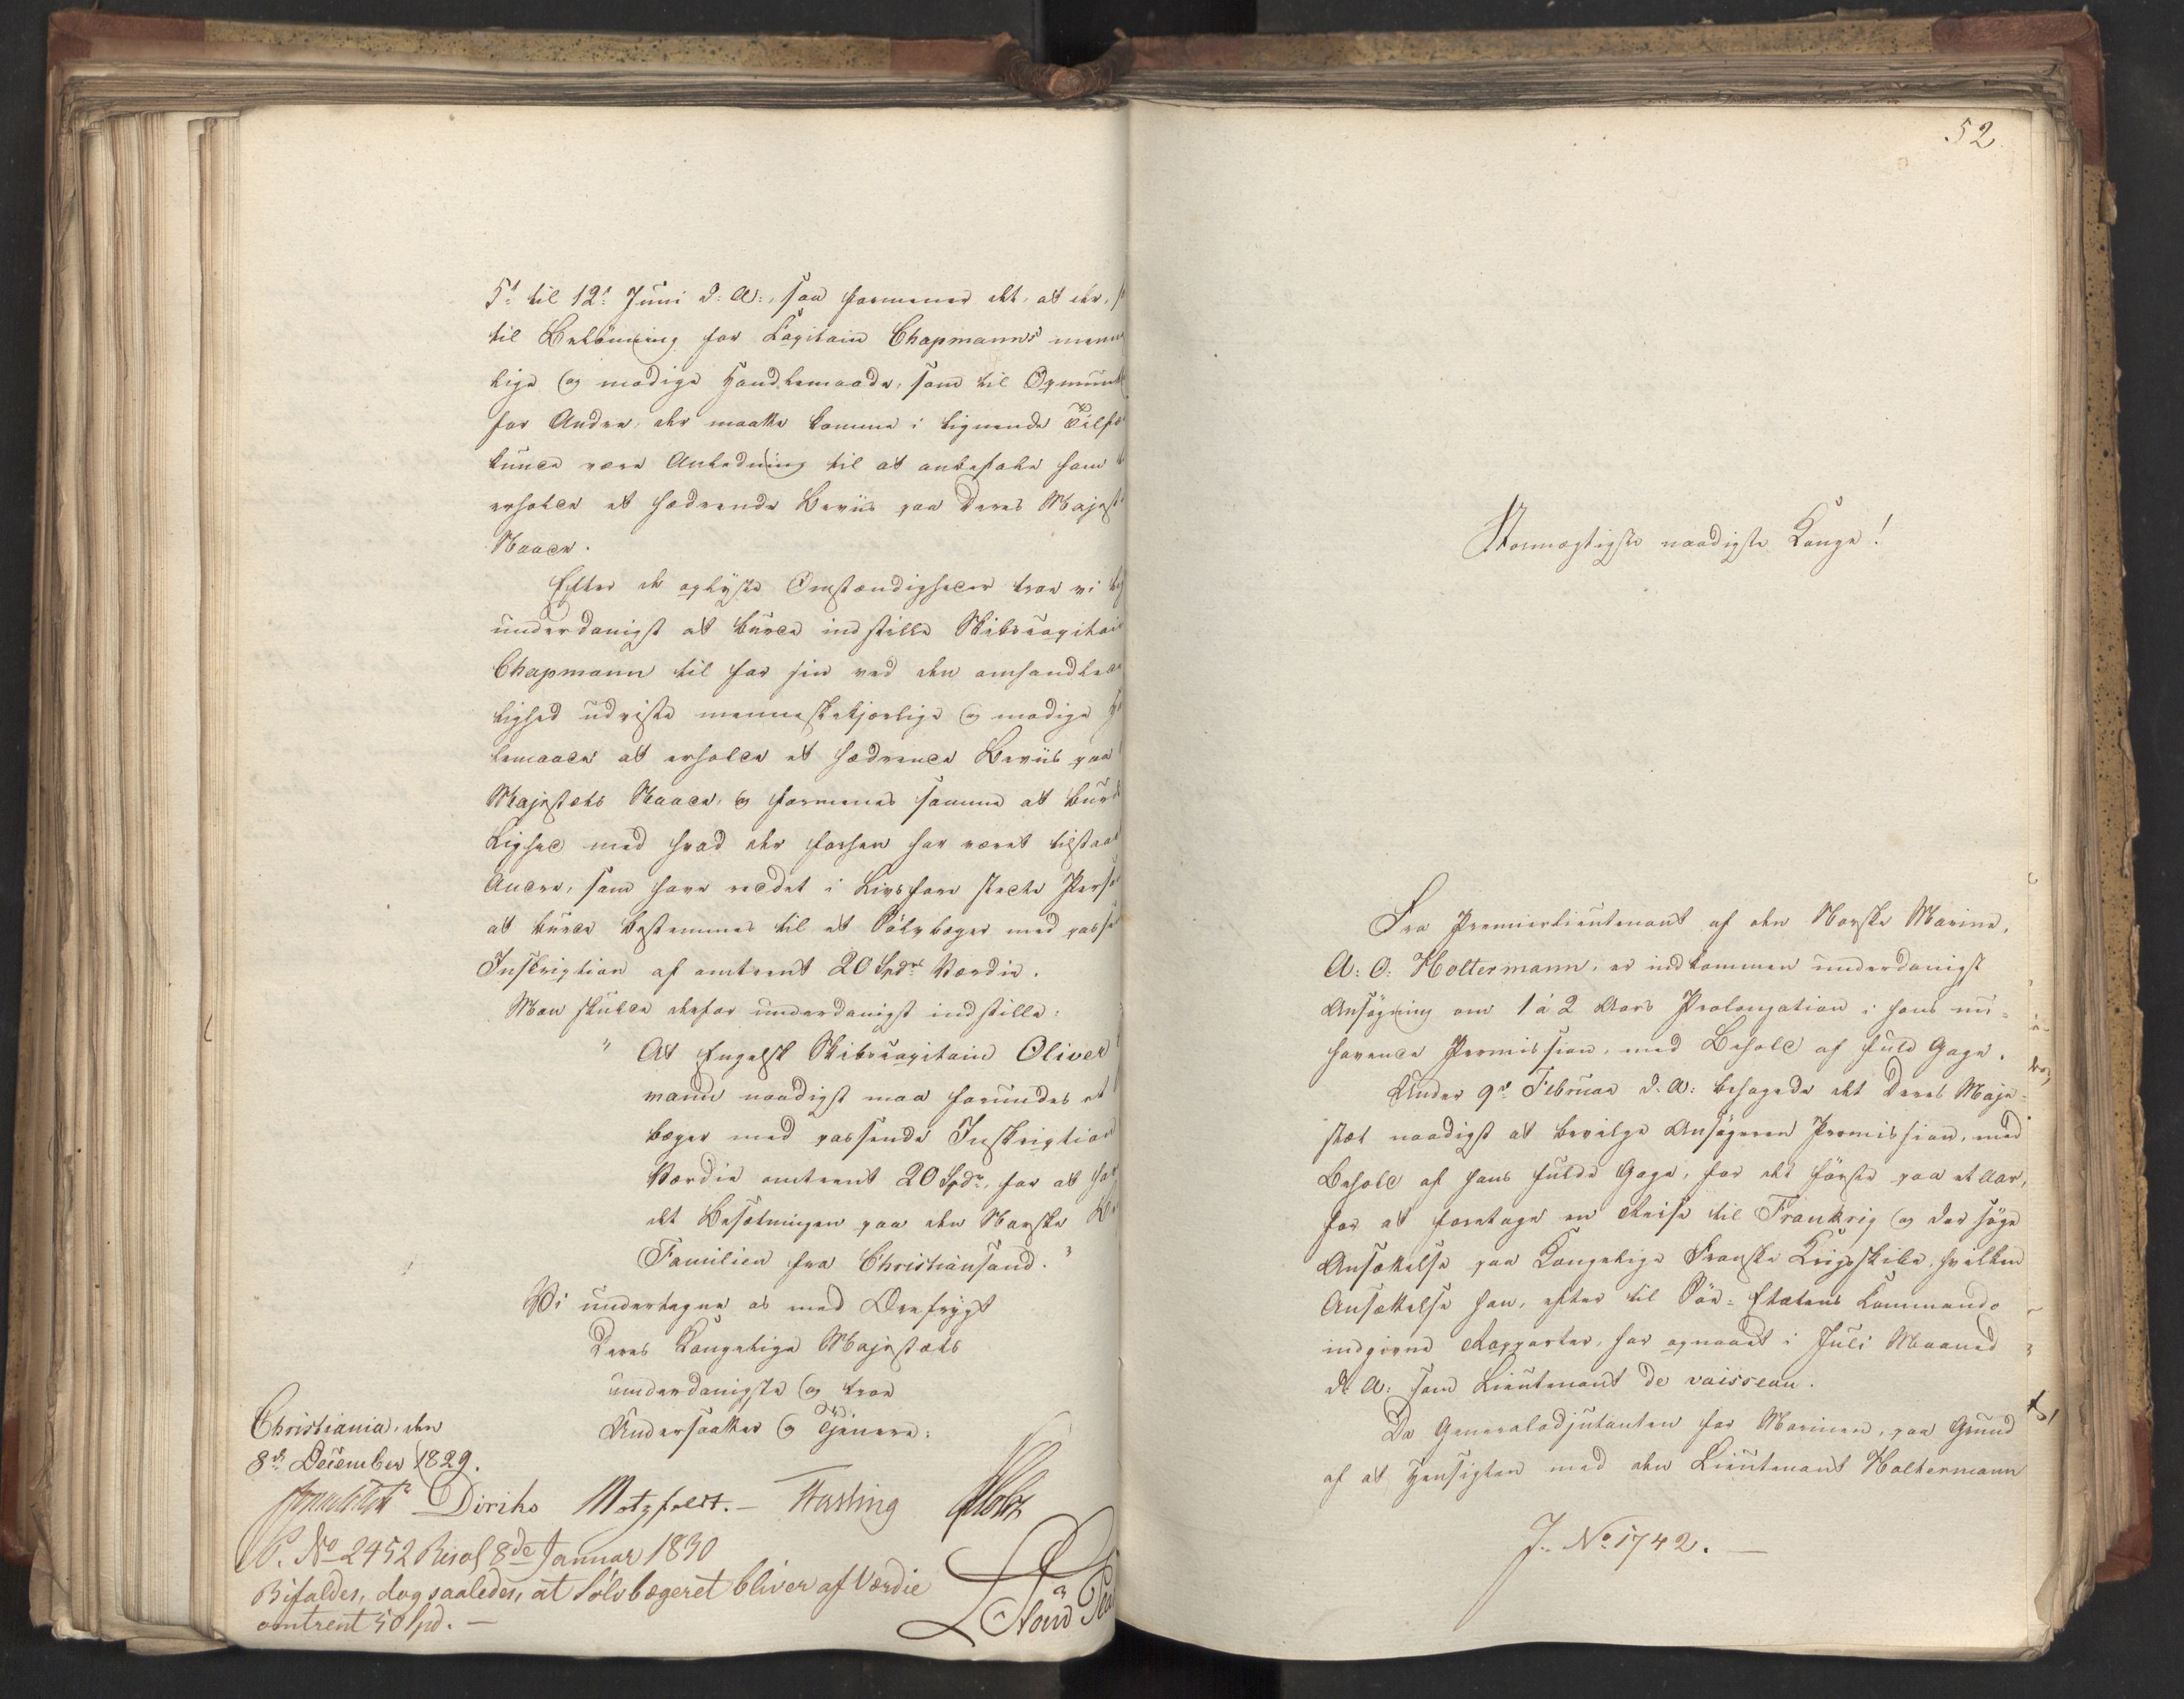 5t til 12t Juni d: A:, saa formener det, at der,
til Belönning for Capitain Chapmanns menne
lige og modige Handlemaade, som til Opmunt
for Andre, der maatte komme i lignende Tilfæ
kunde være Anledning til at anbefale ham
erholde et hædrende Beviis paa Deres Majest
Naade.
Efter de oplyste Omstændigheder troe vi
underdanigst at burde indstille Skibscapitai
Chapmann til for sin ved den omhandlede
lighed udviste menneskekjærlige og modige
lemaade at erholde et hædrende Beviis paa
Majestæts Naade, og formenes samme at burde
Lighed med hvad der forhen har været tilstaaet
Andre, som have reddet i Livsfare stedte Perso
at burde bestemmes til et Sölvbæger med passe
Inscription af omtrent 20 Spdrs Værdie.
Man skulde derfor underdanigst indstille:
" At Engelsk Skibscapitain Oliver
mann naadigst maa forundes et
bæger med passende Inscription
Værdie omtrent 20 Spdr, for at ha
det Besætningen paa den Norske
Familien fra Christiansand."
Vi undertegne os med Ærefrygt
Deres Kongelige Majestæts
underdanigste og troe
Undersaatter og Tjenere:
Christiania, den
8de December 1829.
Diriks Motzfeldt.- Fasting Holst
P. No 2452 Resol 8de Januar 1830
Bifaldes, dog saaledes, at Sölvbægeret bliver af Værdie
omtrent 50 Spd. -
52
Stormægtigste naadigste Konge!
Fra Premierlieutenant af den Norske Marine,
A: O: Holtermann, er indkommen underdanigst
Ansøgning om 1 à 2 Aars Prolongation i hans nu=
havende Permission, med Behold af fuld Gage.
Under 9de Februar d: A: behagede det Deres Maje=
stæt naadigst at bevilge Ansøgeren Permission, med
Behold af hans fulde Gage, for det förste paa et Aar,
for at foretage en Reise til Frankrig og der søge
Ansættelse paa Kongelige Franske Krigsskibe, hvilken
Ansættelse han, efter til Söe=Etatens Commando
indgivne Rapporter, har opnaaet i Juli Maaned
d. A: som Lieutenant de vaisseau.
Da Generaladjutanten for Marinen, paa Grund
af at Hensigten med den Lieutenant Holtermann
J. No 1742. —